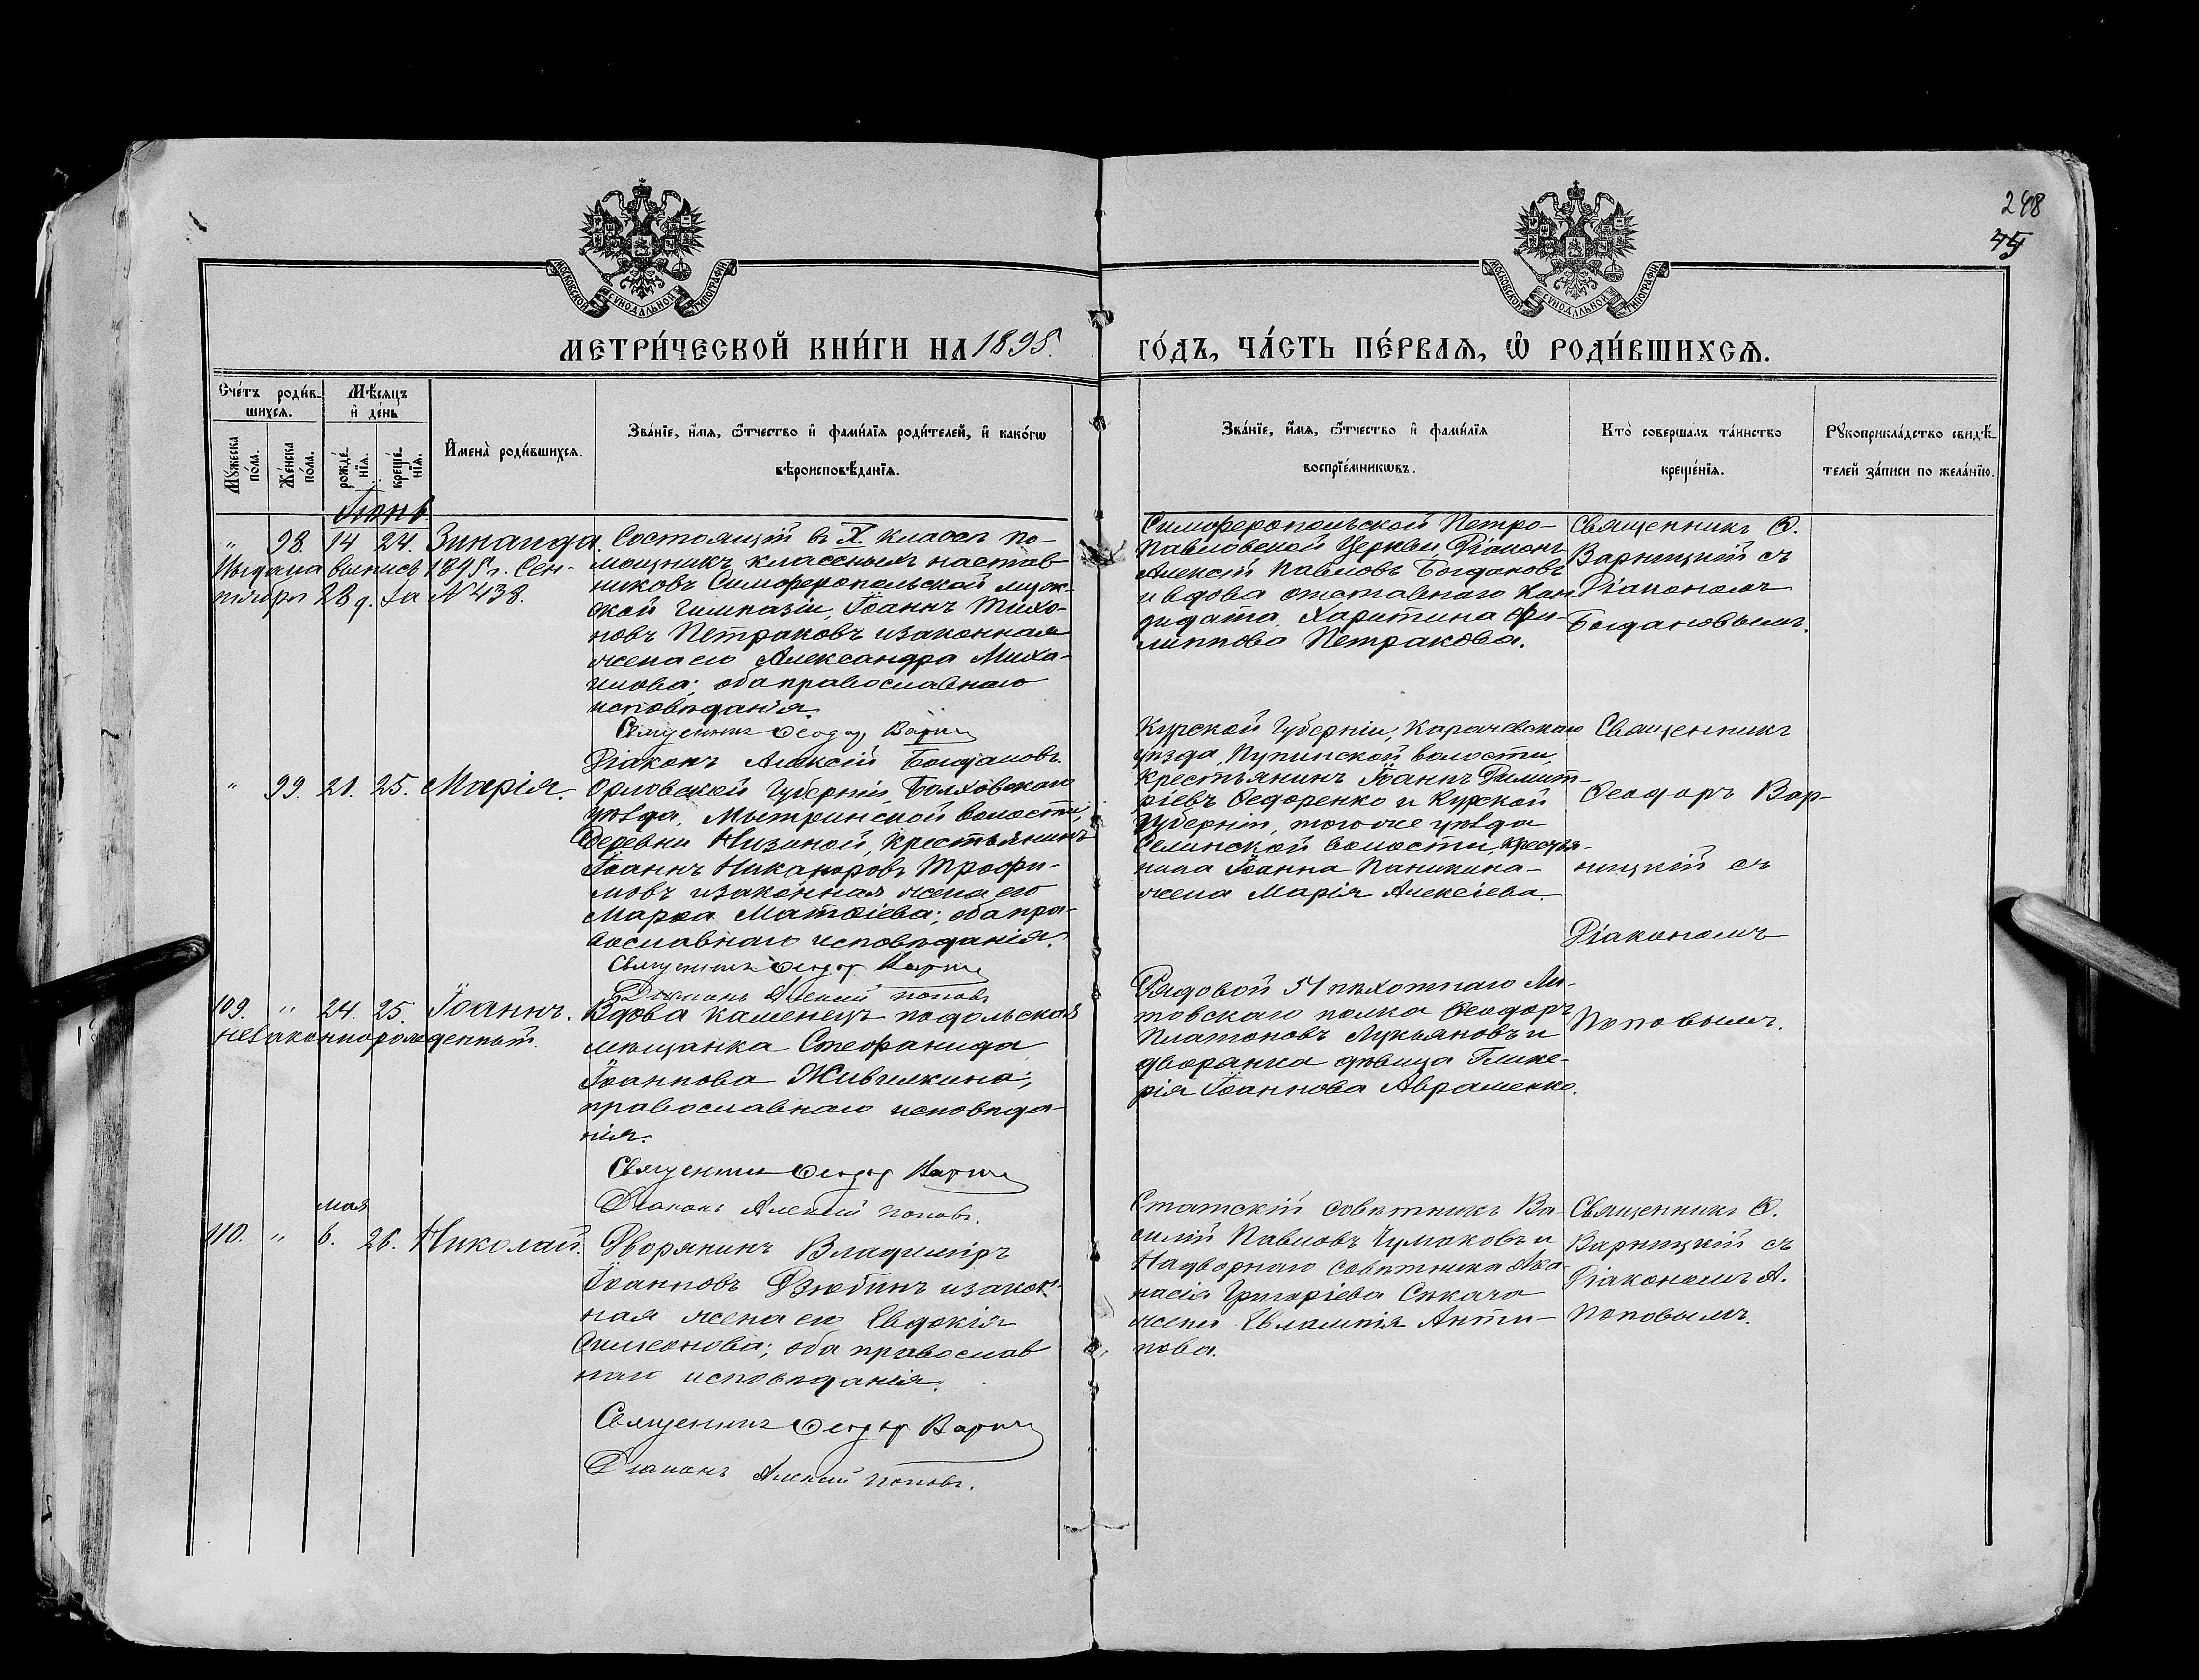 248
45
МОСКОВСКОЙ СѴНОДАЛЬНОЙ ТИПОГРАФІИ
МОСКОВСКОЙ СѴНОДАЛЬНОЙ ТИПОГРАФІИ
МЕТРИ́ЧЕСКОЙ КНИ́ГИ НА 1895.
ГО́ДЪ, ЧА́СТЬ ПЕ́РВАѦ, Ѡ РОДИ́ВШИХСѦ.
Сче́тъ роди́в-
шихсѧ.
Мѣ́сѧцъ
и҆ де́нь
Мꙋ́жеска
по́ла.
Же́нска
по́ла.
рожде́-
нїѧ.
креще́-
нїѧ.
И҆мена̀ роди́вшихсѧ.
Зва́нїе, и҆́мѧ, ѻ҆́тчество и҆ фами́лїѧ роди́телей, и҆ како́гѡ
вѣроисповѣ́данїѧ.
Зва́нїе, и҆́мѧ, ѻ҆́тчество и҆ фами́лїѧ
воспрїе́мникѡвъ.
Кто̀ соверша́лъ та́инство
креще́нїѧ.
Рꙋкоприкла́дство свидѣ́-
телей за́писи по жела́нїю.
Іюнь
" 98. 14 24. Зинаида.
Выдана выпись 1895 г. Сен-
тября 28 д. за № 438.
Состоящій въ X. классѣ по-
мощникъ классныхъ настав-
никовъ Симферопольской муж-
ской гимназіи, Іоаннъ Тихо-
новъ Петраковъ и законная
жена его Александра Миха-
илова; оба православнаго
исповѣданія.
Священникъ Ѳеодоръ Варни
Діаконъ Алексій Богдановъ.
Симферопольской Петро-
Павловской Церкви, Діаконъ
Алексій Павловъ Богдановъ
и вдова отставного Кан
дидата, Харитина Фи-
липпова Петракова.
Священникъ Ѳ.
Варницкій съ
Діакономъ
Богдановымъ.
" 99. 21. 25. Марія.
Орловской Губерніи, Болховскаго
уѣзда, волости,
деревни Низиной, крестьянинъ
Іоаннъ Никаноровъ Трофи-
мовъ и законная жена его
Марѳа Матѳіева; оба пра-
вославнаго исповѣданія.
Священникъ Ѳеодоръ Варни
Діаконъ Алексій Поповъ
Курской Губерніи, Карачевскаго
уѣзда, волости,
крестьянинъ Іоаннъ Димит-
ріевъ Ѳедоренко и Курской
Губерніи, того же уѣзда
Селинской волости, крестья-
нина Іоанна Паникина-
жена Марія Алексіева.
Священникъ
Ѳеодоръ Вар-
ницкій съ
Діакономъ
Поповымъ.
109. " 24. 25. Іоаннъ.
незаконнорожденный.
Вдова Каменецъ-подольская
мѣщанка Стефанида
Іоаннова Живилкина;
православнаго исповѣда-
нія.
Священникъ Ѳеодоръ Варни
Діаконъ Алексій Поповъ.
Рядовой 51 пѣхотнаго Ли-
товскаго полка Ѳеодоръ
Платоновъ Лукьяновъ и
дворянка дѣвица Глике-
рія Іоаннова Авраменко.
мая
110. " 6. 26. Николай.
Дворянинъ Владиміръ
Іоанновъ Дзюбинъ и закон-
ная жена его Евдокія
Симеонова; оба православ
наго исповѣданія.
Священникъ Ѳеодоръ Варни
Діаконъ Алексій Поповъ.
Статскій совѣтникъ Ва-
силій Павловъ Чумаковъ и
Надворнаго совѣтника Аѳа
насія Григоріева Сѣкача
жена Евлампія Анти-
пова.
Священникъ Ѳ.
Варницкій съ
Діакономъ А.
Поповымъ.